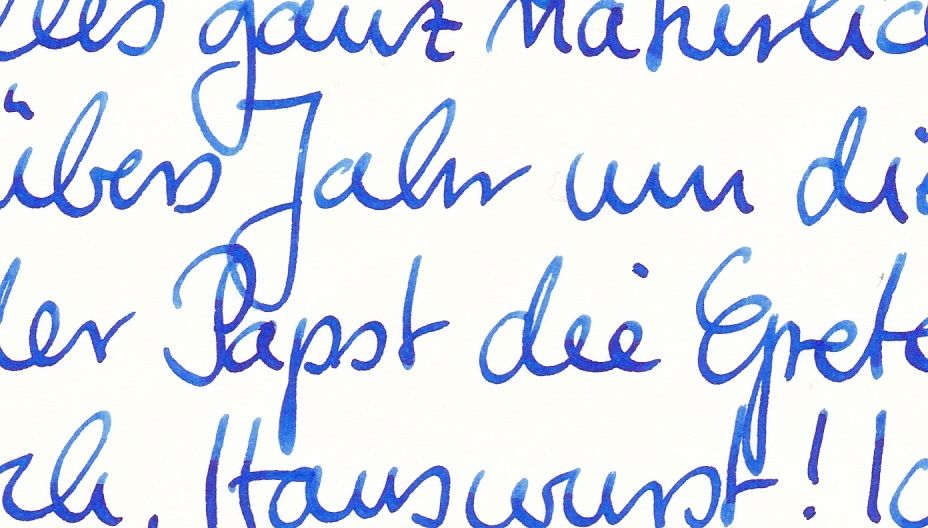 lles ganz natürlic
übers Jahr um die
der Papst die Grete
ch, Hanswurst! Ic